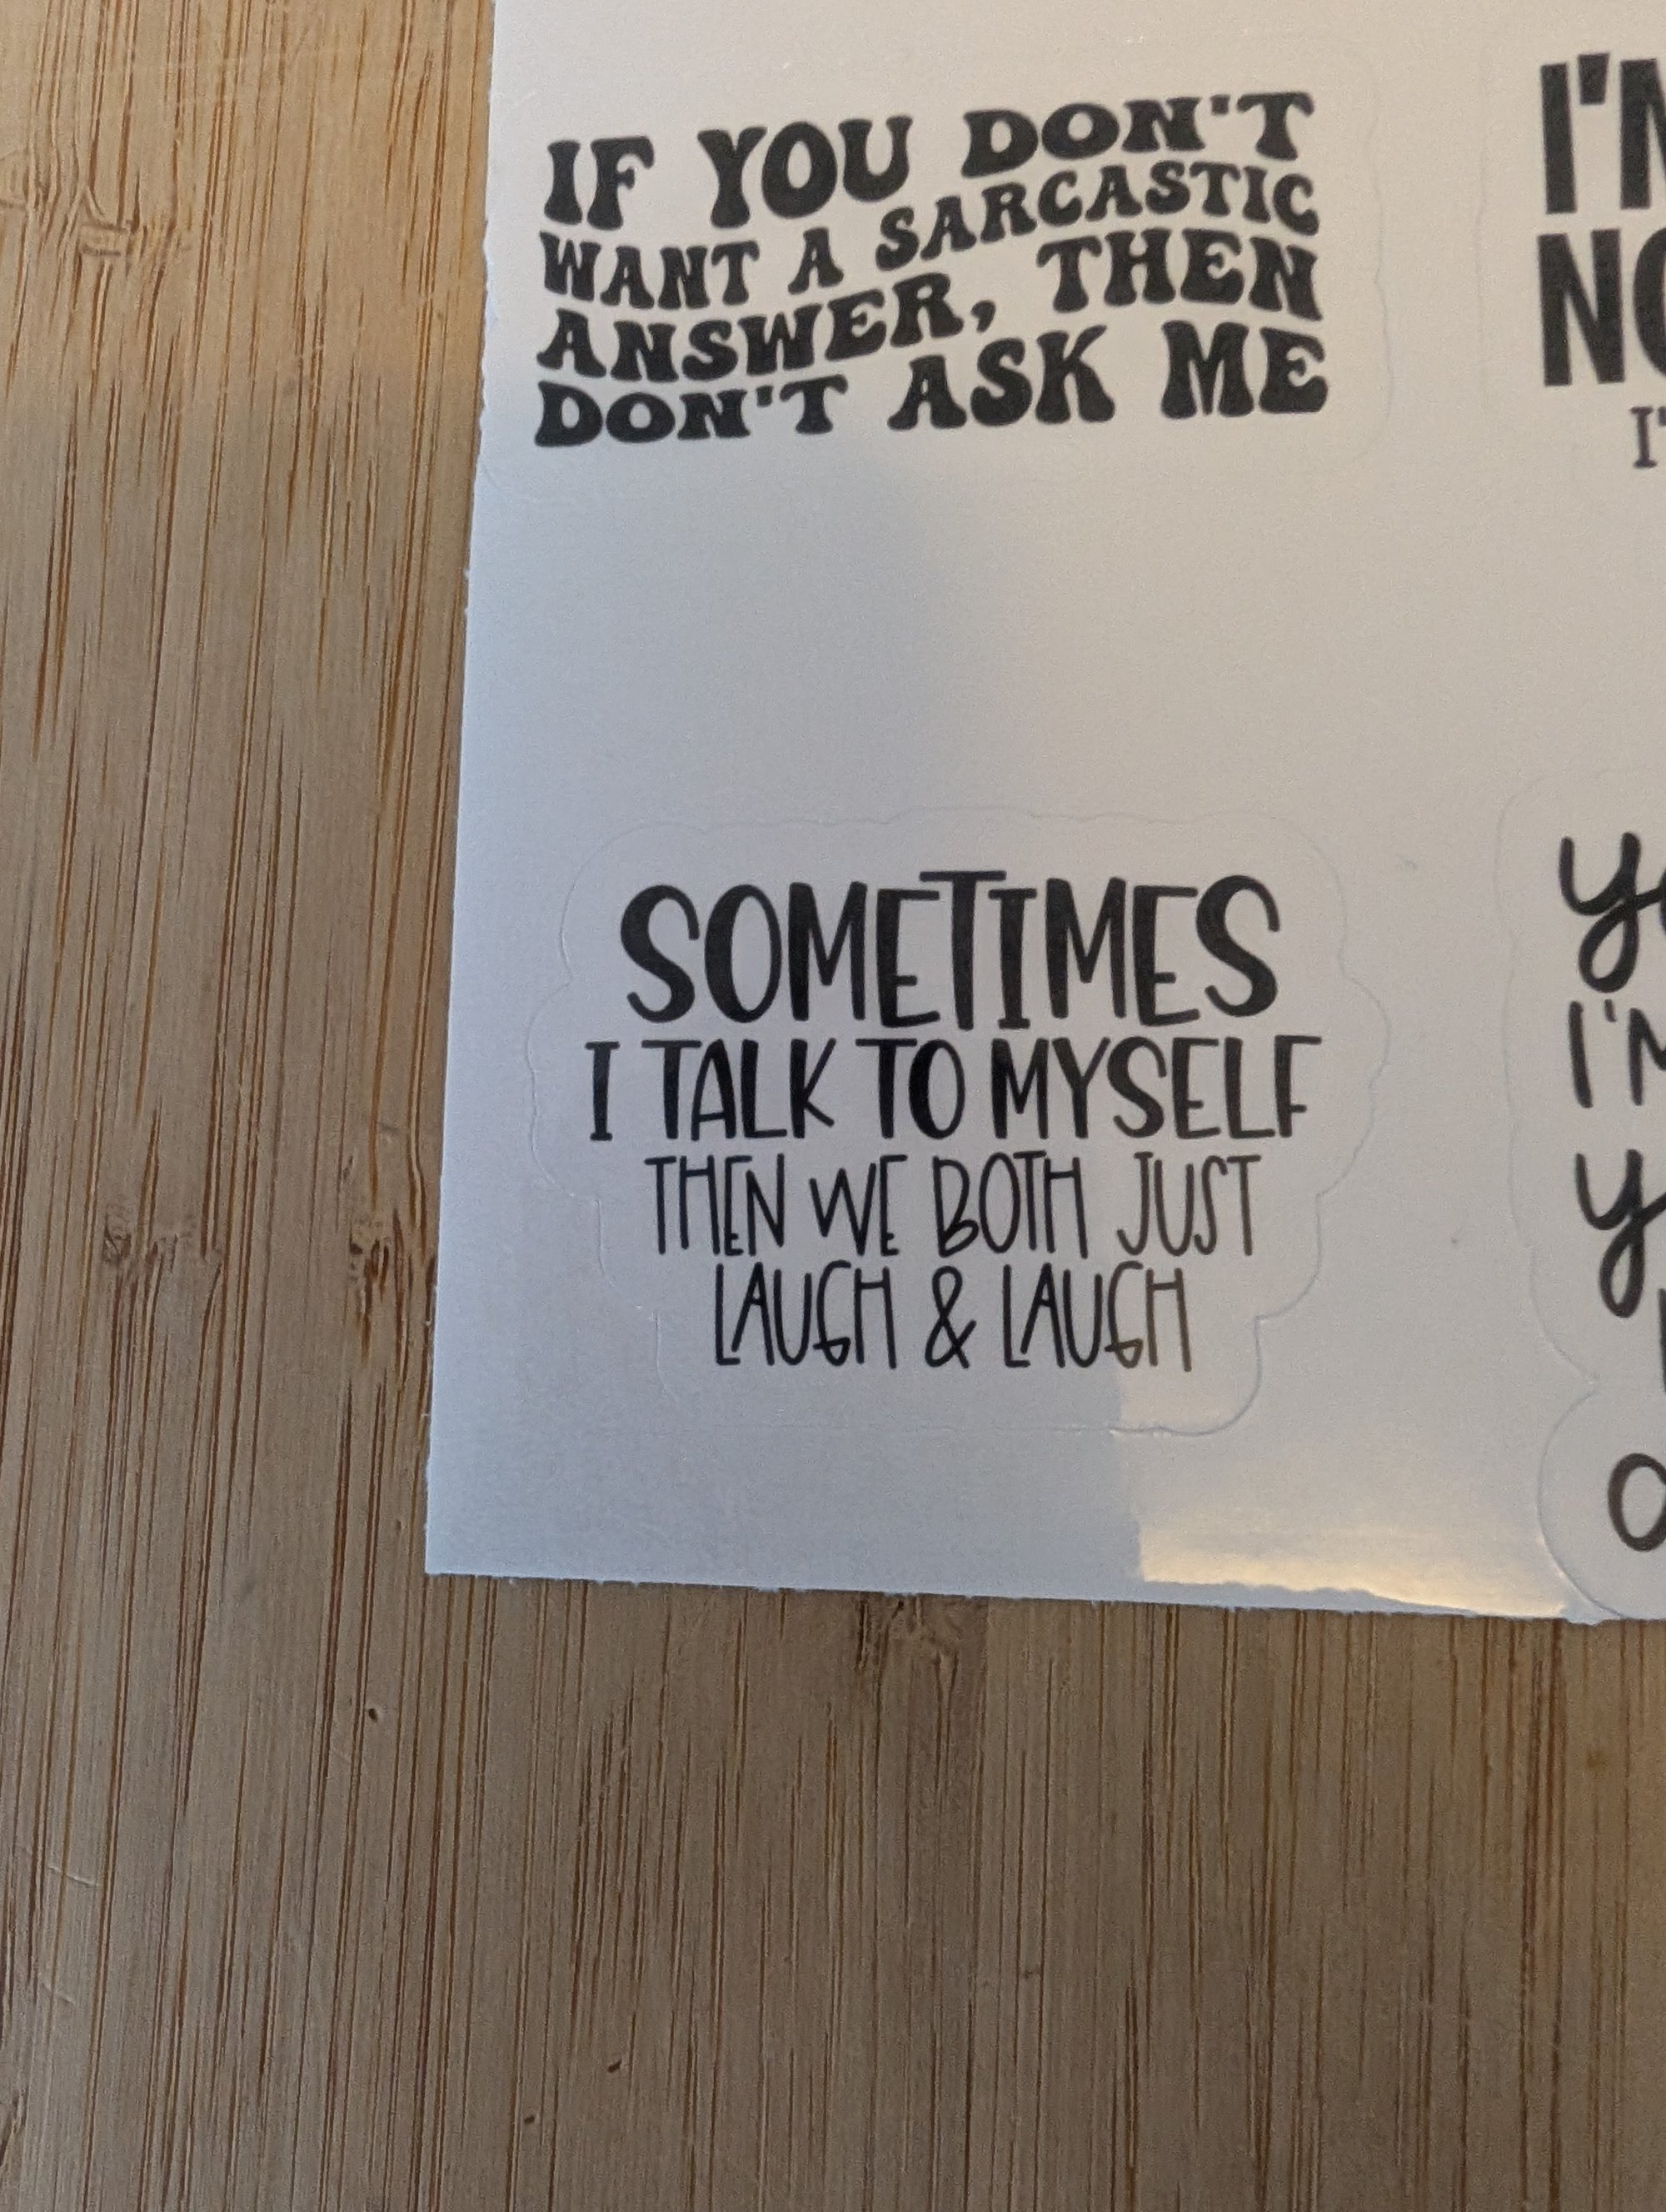 IF YOU DON'T
WANT A SARCASTIC
ANSWER, THEN
DON'T ASK ME
SOMETIMES
I TALK TO MYSELF
THEN WE BOTH JUST
LAUGH & LAUGH